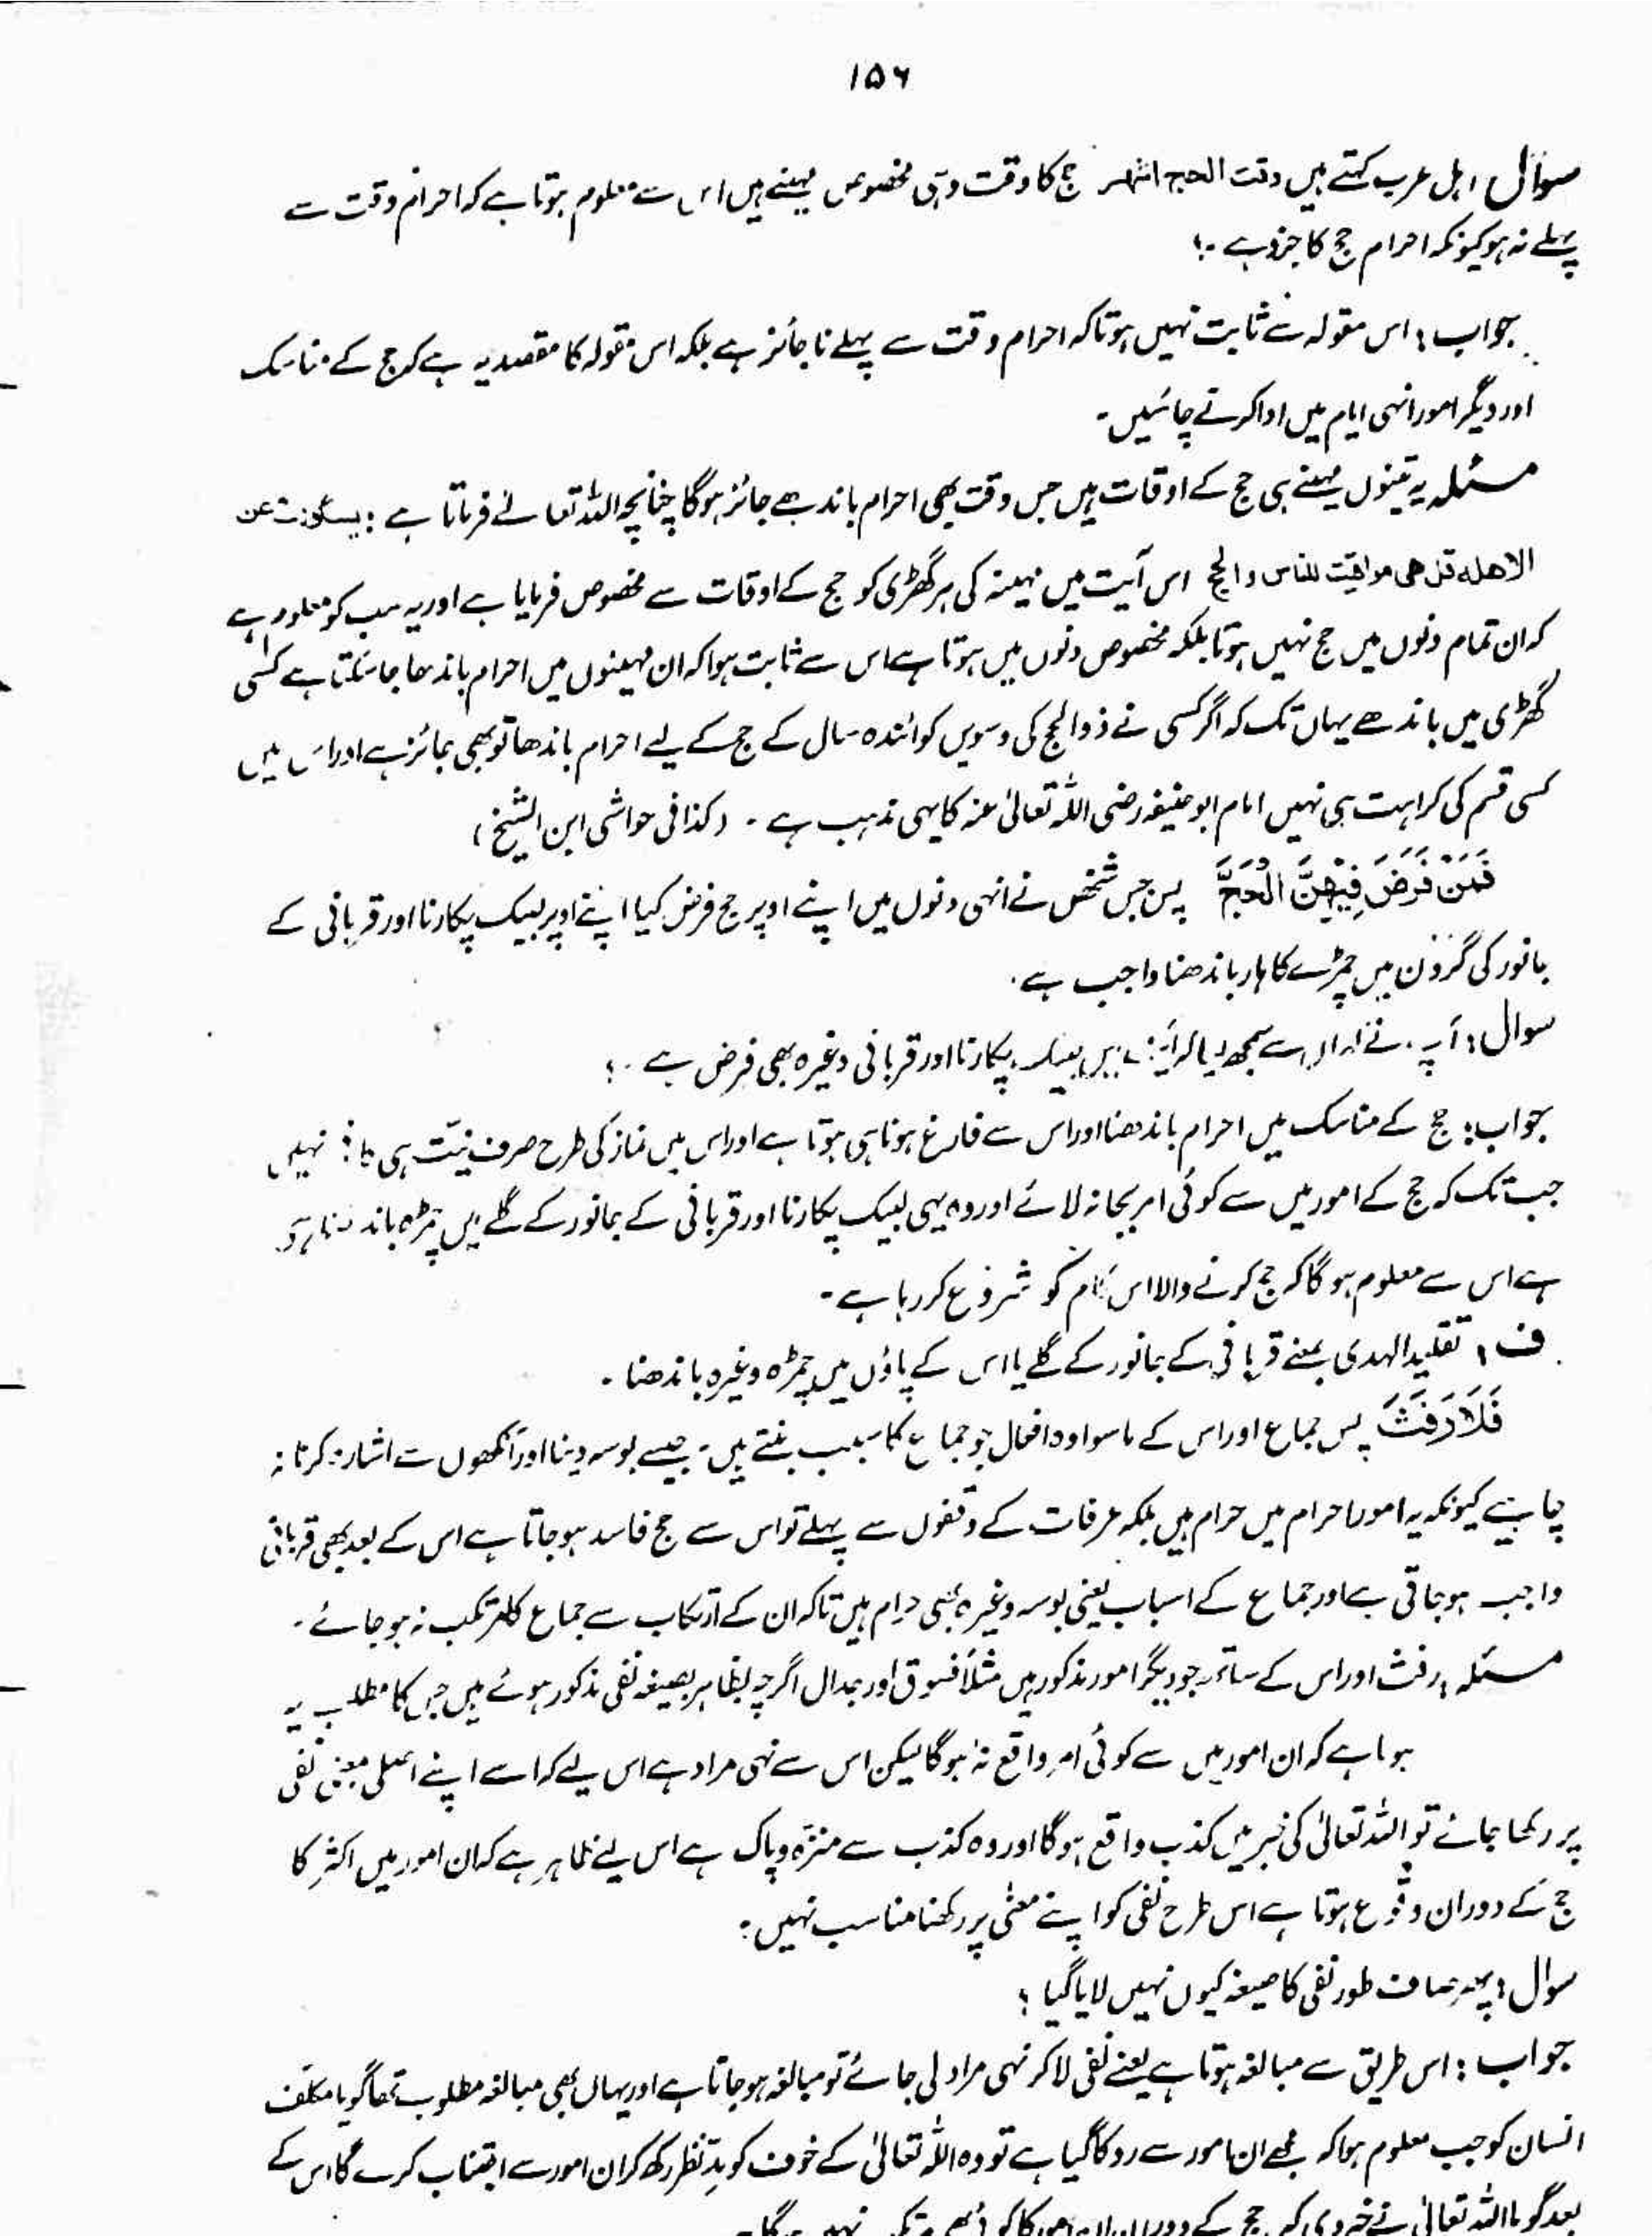 ۱۵۶
سوال: اہل عرب کہتے ہیں وقت الحج اشہر حج کا وقت وہی مخصوص مہینے ہیں اس سے معلوم ہوتا ہے کہ احرام وقت سے
پہلے نہ ہو کیونکہ احرام حج کا جزو ہے۔؟
جواب: اس مقولہ سے ثابت نہیں ہوتا کہ احرام وقت سے پہلے ناجائز ہے بلکہ اس مقولہ کا مقصد یہ ہے کہ حج کے مناسک
اور دیگر امور انہی ایام میں ادا کرنے چاہئیں۔
مسئلہ یہ تینوں مہینے ہی حج کے اوقات ہیں جس وقت بھی احرام باندھے جائز ہوگا چنانچہ اللہ تعالےٰ فرماتا ہے: یسئلونک عن
الاھلہ قل ھی مواقیت للناس والحج اس آیت میں مہینہ کی ہر گھڑی کو حج کے اوقات سے مخصوص فرمایا ہے اور یہ سب کو معلوم ہے
کہ ان تمام دنوں میں حج نہیں ہوتا بلکہ مخصوص دنوں میں ہوتا ہے اس سے ثابت ہوا کہ ان مہینوں میں احرام باندھا جا سکتا ہے کسی
گھڑی میں باندھے یہاں تک کہ اگر کسی نے ذوالحج کی دسویں کو ائندہ سال کے حج کے لیے احرام باندھا تو بھی جائز ہے اور اس میں
کسی قسم کی کراہت ہی نہیں امام ابوحنیفہ رضی اللہ تعالیٰ عنہ کا یہی مذہب ہے۔ (کذا فی حواشی ابن الشیخ)
فَمَنْ فَرَضَ فِيْهِنَّ الْحَجَّ پس جس شخص نے انہی دنوں میں اپنے اوپر حج فرض کیا اپنے اوپر لبیک پکارنا اور قربانی کے
جانور کی گردن میں چمڑے کا ہار باندھنا واجب ہے۔
سوال: آپ نے سے سمجھ لیا پکارنا اور قربانی وغیرہ بھی فرض ہے۔؟
جواب: حج کے مناسک میں احرام باندھنا اور اس سے فارغ ہونا ہی ہوتا ہے اور اس میں نماز کی طرح صرف نیّت ہی نہیں
جب تک کہ حج کے امور میں سے کوئی امر بجا نہ لائے اور وہ یہی لبیک پکارنا اور قربانی کے جانور کے گلے میں چمڑہ باندھنا
ہے اس سے معلوم ہوگا کہ حج کرنے والا اس کام کو شروع کر رہا ہے۔
ف: تقلید الہدی بمعنے قربانی کے جانور کے گلے یا اس کے پاؤں میں چمڑہ وغیرہ باندھنا۔
فَلَا رَفَثَ پس جماع اور اس کے ماسوا وہ افعال جو جماع کا سبب بنتے ہیں۔ جیسے بوسہ دینا اور آنکھوں سے اشارہ کرنا نہ
چاہیئے کیونکہ یہ امور احرام میں حرام ہیں بلکہ عرفات کے وقفوں سے پہلے تو اس سے حج فاسد ہو جاتا ہے اس کے بعد بھی قربانی
واجب ہو جاتی ہے اور جماع کے اسباب یعنی بوسہ وغیرہ بھی حرام ہیں تاکہ ان کے ارتکاب سے جماع کا مرتکب نہ ہو جائے۔
مسئلہ: رفث اور اس کے ساتھ جو دیگر امور مذکور ہیں مثلاً فسوق اور جدال اگرچہ بظاہر بصیغہ نفی مذکور ہوئے ہیں جس کا مطلب یہ
ہوتا ہے کہ ان امور میں سے کوئی امر واقع نہ ہوگا لیکن اس سے نہی مراد ہے اس لیے کہ اسے اپنے اصلی معنی نفی
پر رکھا جائے تو اللہ تعالیٰ کی خبر میں کذب واقع ہوگا اور وہ کذب سے منزّہ و پاک ہے اس لیے ظاہر ہے کہ ان امور میں اکثر کا
حج کے دوران وقوع ہوتا ہے اس طرح نفی کو اپنے معنیٰ پر رکھنا مناسب نہیں:
سوال: پھر صاف طور نفی کا صیغہ کیوں نہیں لایا گیا؟
جواب: اس طریق سے مبالغہ ہوتا ہے یعنے نفی لا کر نہی مراد لی جائے تو مبالغہ ہو جاتا ہے اور یہاں بھی مبالغہ مطلوب تھا گویا مکلف
انسان کو جب معلوم ہوا کہ مجھے ان امور سے روکا گیا ہے تو وہ اللہ تعالیٰ کے خوف کو مدِّنظر رکھ کر ان امور سے اجتناب کرے گا اس کے
بعد گویا اللہ تعالیٰ نے خبر دی کہ حج کے دوران ان امور کا کوئی بھی مرتکب نہیں ہوگا۔